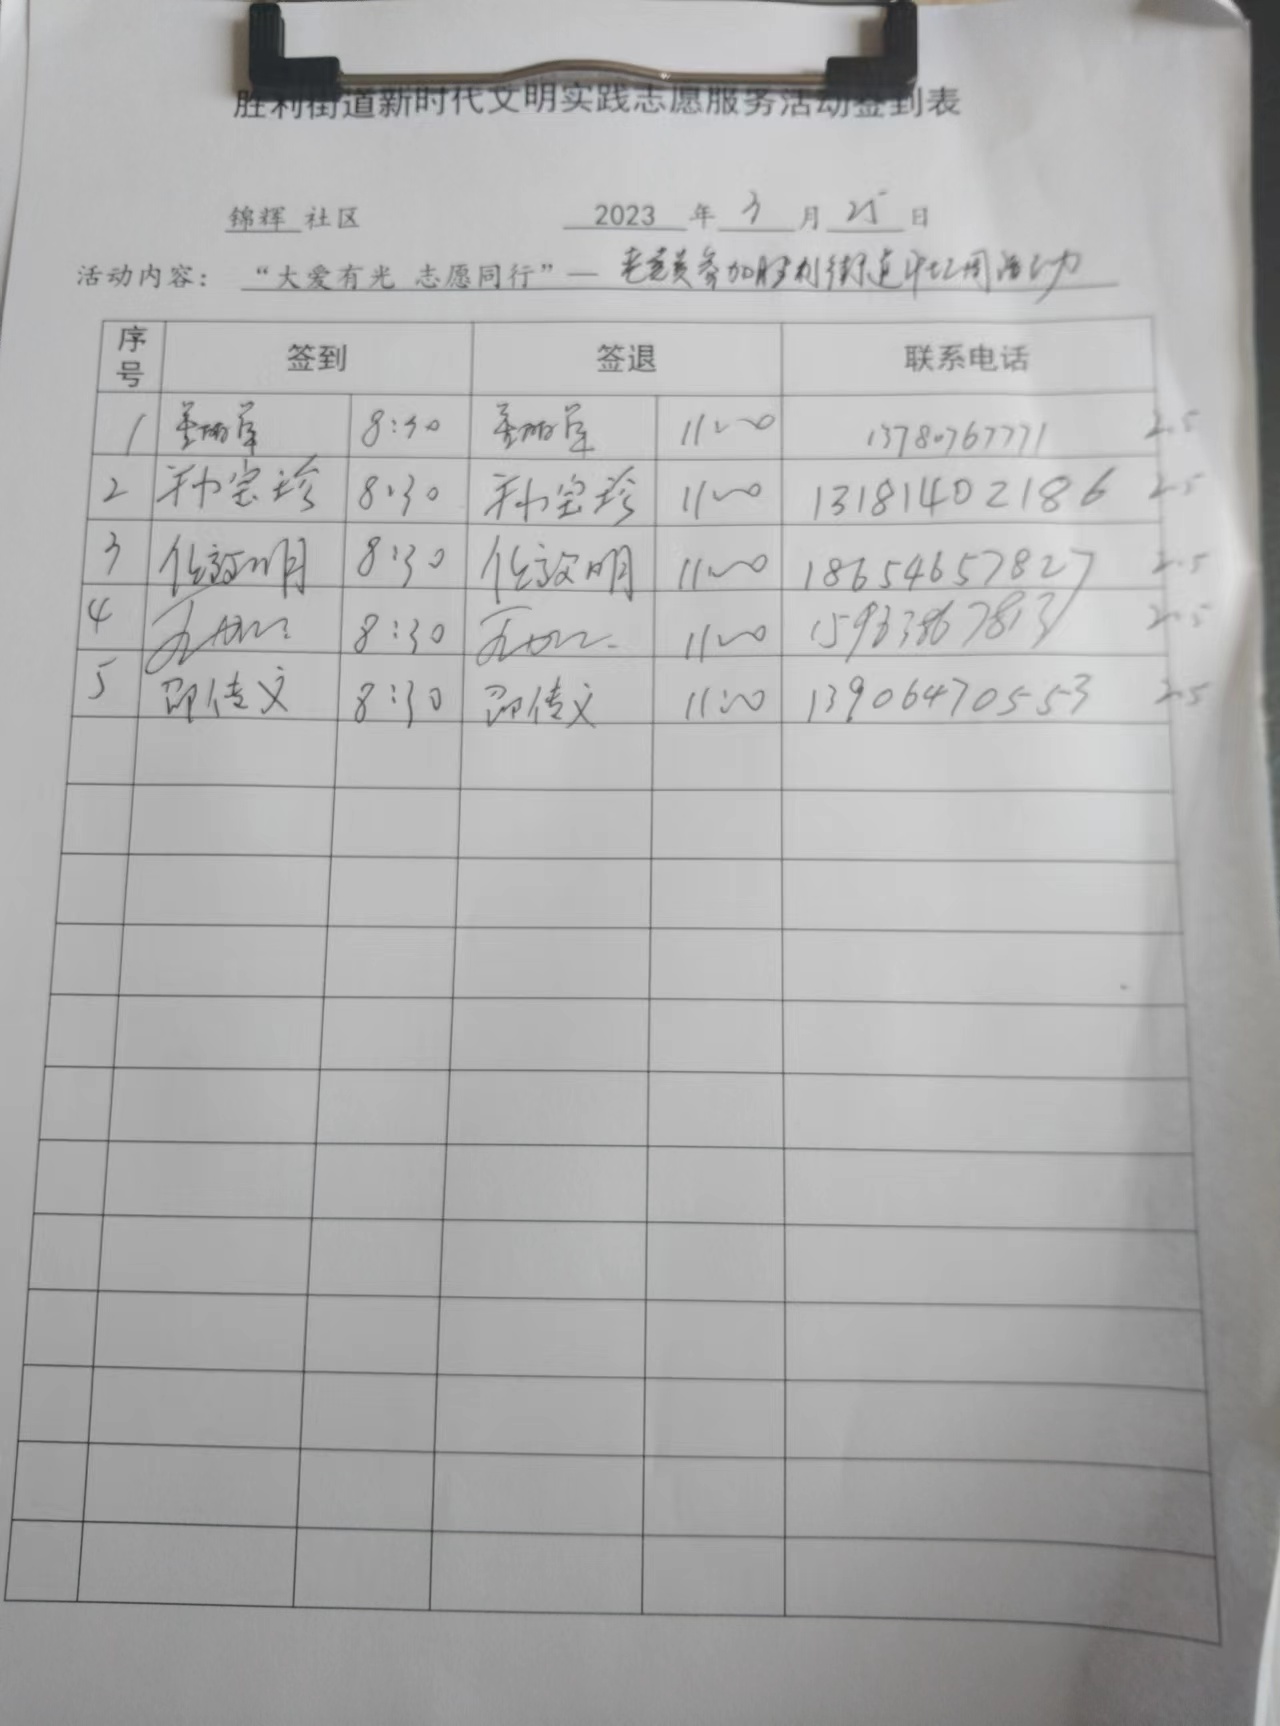 胜利街道新时代文明实践志愿服务活动签到表
锦辉 社区 2023 年 3 月 25 日
活动内容： “大爱有光 志愿同行”— 老党员参加胜利街道 活动
序号 签到 签退 联系电话
1 8:30 11:00 13780767771 2.5
2 孙宝珍 8:30 孙宝珍 11:00 13181402186 2.5
3 任效明 8:30 任效明 11:00 18654657827 2.5
4 8:30 11:00 2.5
5 邵传文 8:30 邵传文 11:00 13906470553 2.5